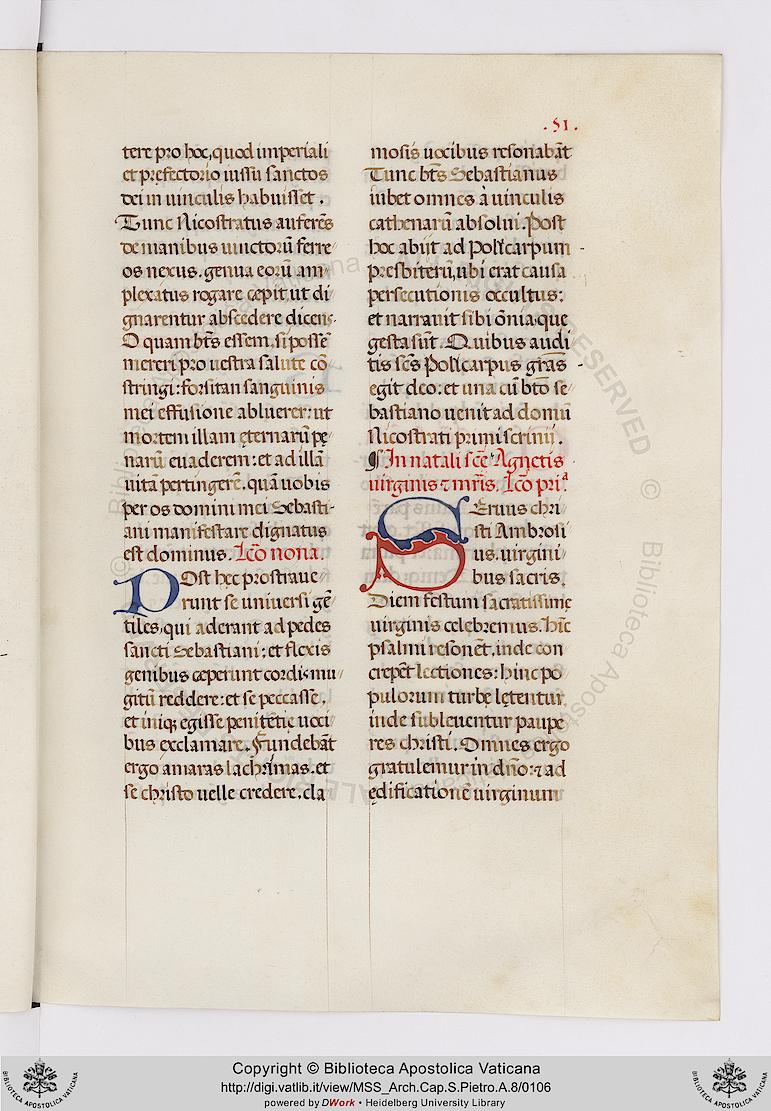 .51.
tere pro hoc, quod imperiali
et prefectorio iussu sanctos
dei in uinculis habuisset.
Tunc Nicostratus auferēs
de manibus uinctorū ferre
os nexus. genua eorū am
plexatus rogare cepit ut di
gnarentur abscedere dicens.
O quam bt̄s essem, si possē
mereri pro uestra salute cō
stringi: forsitan sanguinis
mei effusione abluerer: ut
mortem illam ęternarū pę
narū euaderem: et ad illā
uitā pertingerē. quā uobis
per os domini mei Sebasti
ani manifestare dignatus
est dominus. Lc̄o nona.
Post hęc prostraue
runt se uniuersi gē
tiles, qui aderant ad pedes
sancti Sebastiani: et flexis
genibus ceperunt cordis mu
gitū reddere: et se peccasse,
et iniq; egisse penitētię uoci
bus exclamare. Fundebāt
ergo amaras lachrimas. et
se christo uelle credere. cla
mosis uocibus resonabāt
Tunc bt̄s Sebastianus
iubet omnes à uinculis
cathenarū absolui. Post
hoc abijt ad Policarpum
presbiterū, ubi erat causa
persecutionis occultus:
et narrauit sibi oīnia que
gesta sūt. Quibus audi
tis sc̄s Policarpus grās
egit deo: et una cū btō se
bastiano uenit ad domū
Nicostrati primiscrinij.
¶ In natali sc̄e Agnetis
uirginis ⁊ mr̄is. Lc̄o pri.ᵃ
Seruus chri
sti Ambrosi
us. uirgini
bus sacris.
Diem festum sacratissimę
uirginis celebremus. Hīc
psalmi resonēt, inde con
crepēt lectiones: hinc po
pulorum turbę lętentur,
inde subleuentur paupe
res christi. Omnes ergo
gratulemur in dn̄o: ⁊ ad
ędificationē uirginum
Copyright © Biblioteca Apostolica Vaticana
http://digi.vatlib.it/view/MSS_Arch.Cap.S.Pietro.A.8/0106
powered by DWork • Heidelberg University Library